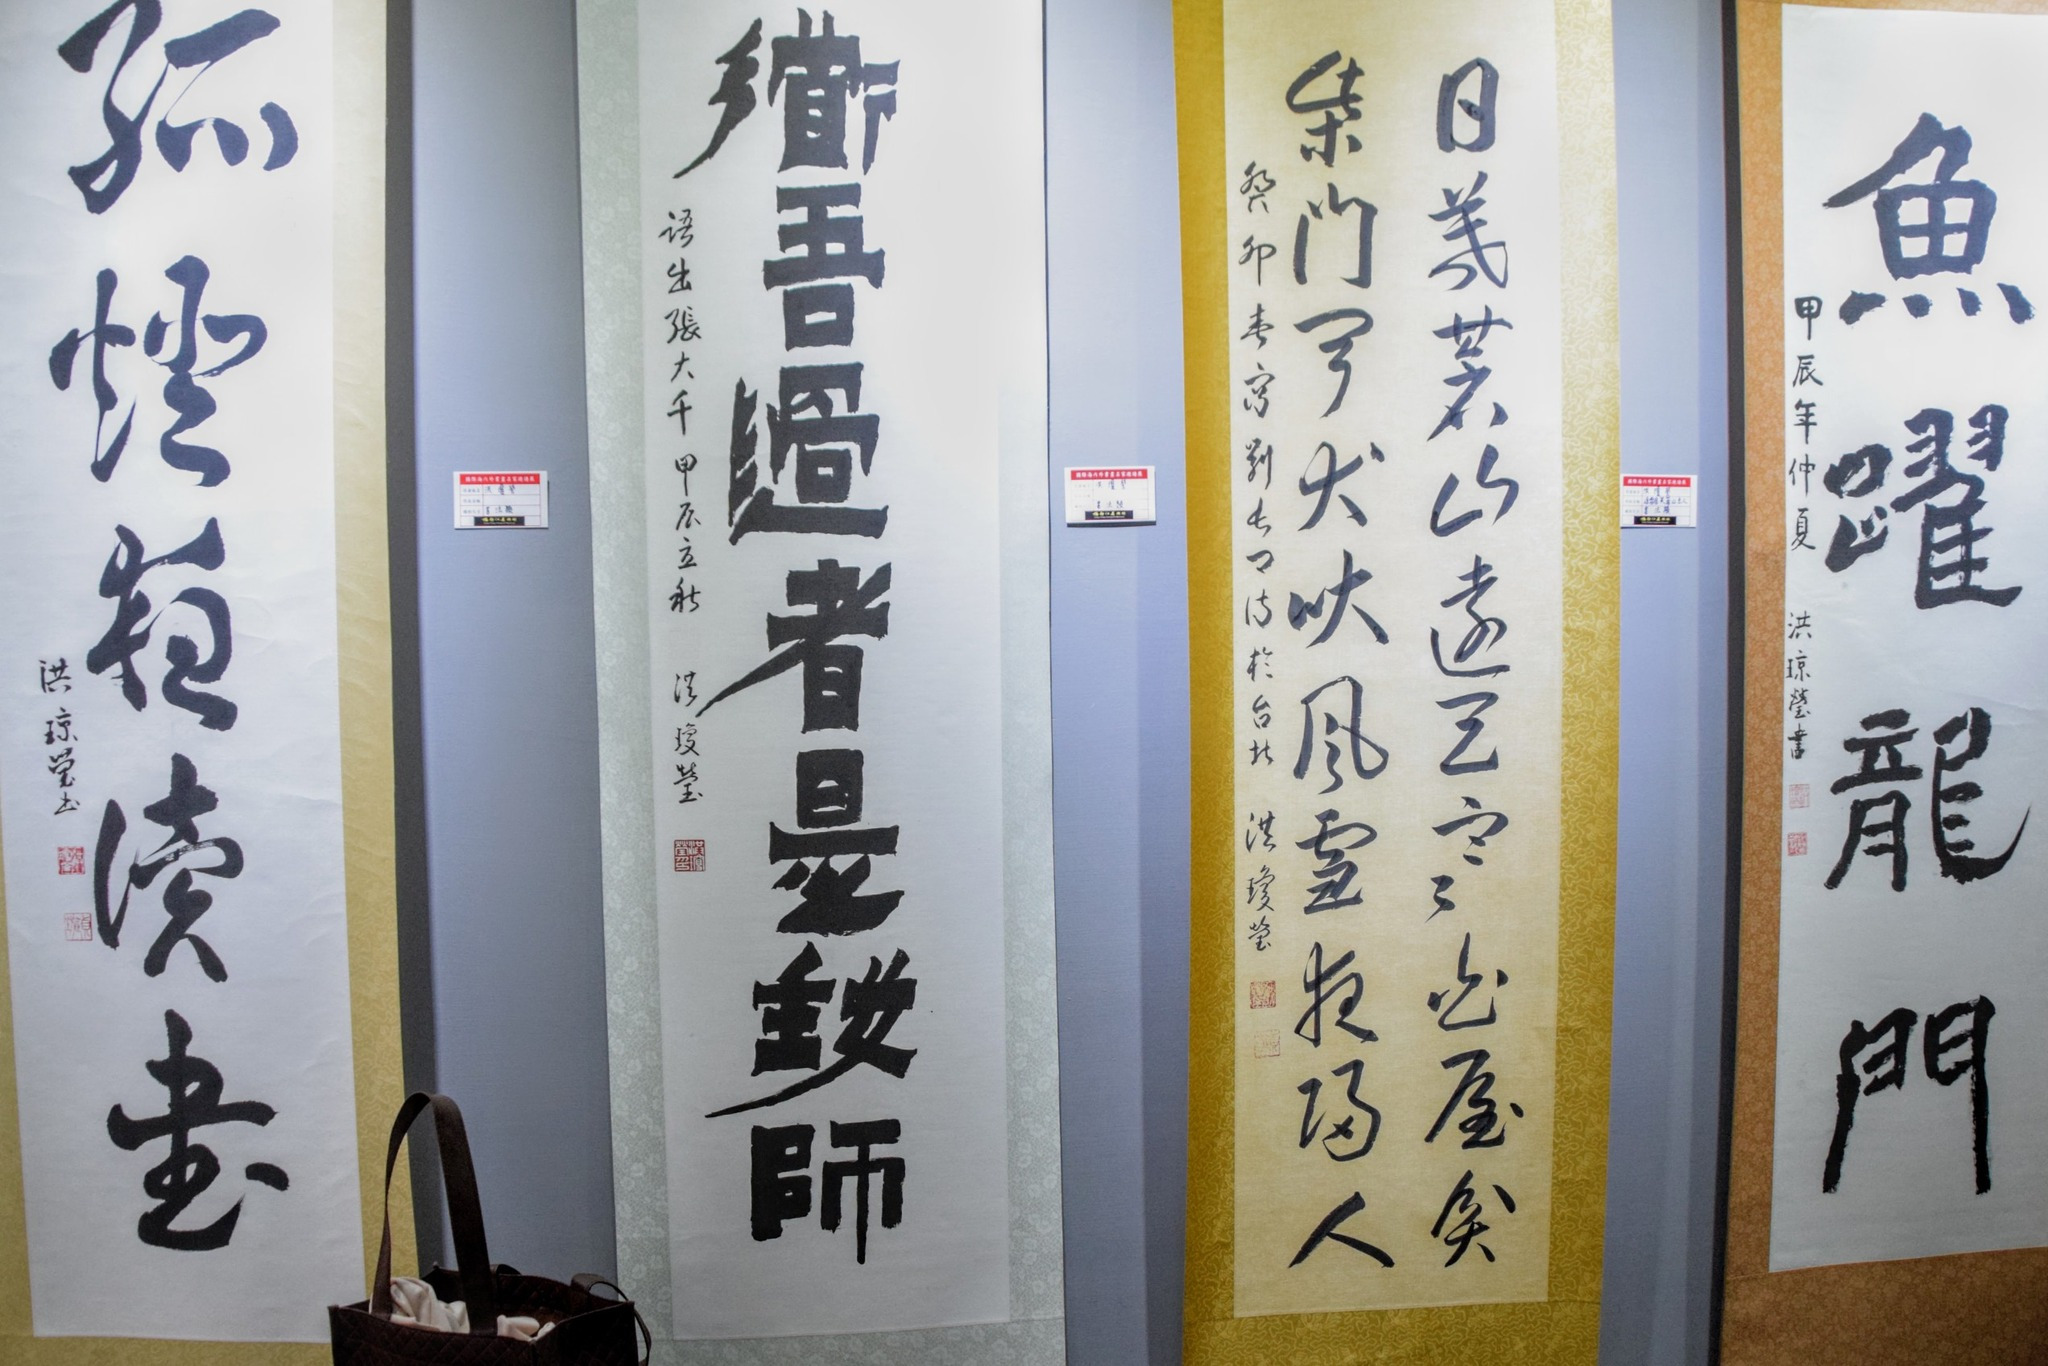 孤燈讀書
洪琼瑩书
衜吾過者是師
語出張大千 甲辰立秋 洪瓊瑩
日暮蒼山遠天寒白屋貧
柴門聞犬吠風雪夜歸人
癸卯春寫劉長卿詩於台北 洪瓊瑩
魚躍龍門
甲辰年仲夏 洪琼瑩書